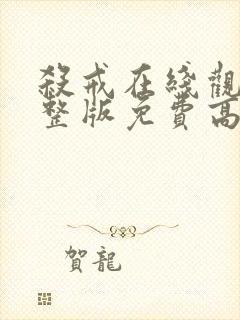 殺戒在綫觀
整版免費高
賀龍